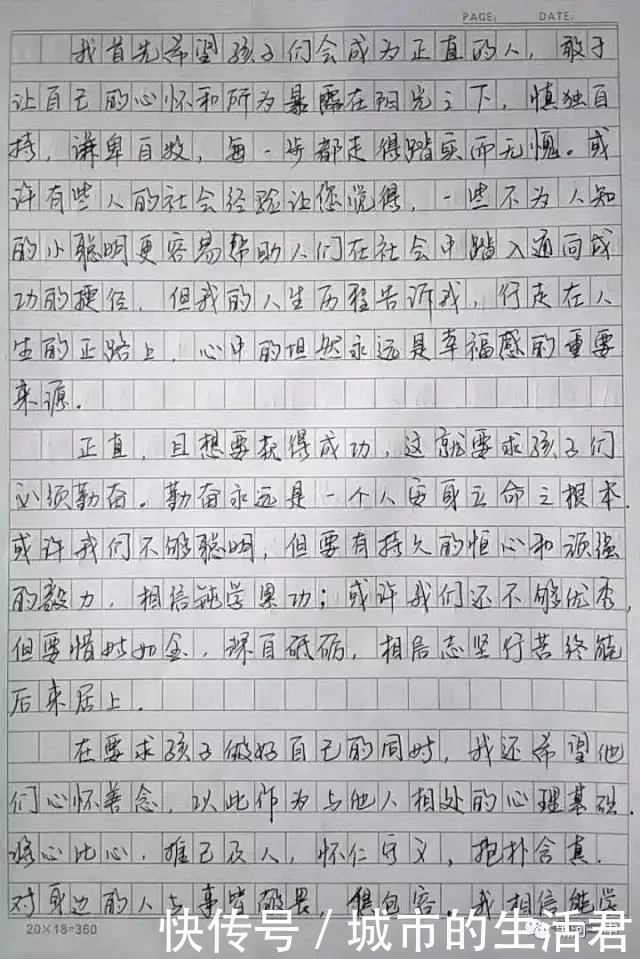 PAGE: DATE:
我首先希望孩子们会成为正直的人，敢于
让自己的心怀和所为暴露在阳光之下，慎独自
持，谦卑自牧，每一步都走得踏实而无愧。或
许有些人的社会经验让您觉得，一些不为人知
的小聪明更容易帮助人们在社会中踏入通向成
功的捷径，但我的人生历程告诉我，行走在人
生的正路上，心中的坦然永远是幸福感的重要
来源.
正直，且想要获得成功，这就要求孩子们
必须勤奋。勤奋永远是一个人安身立命之根本.
或许我们不够聪明，但要有持久的恒心和顽强
的毅力，相信钝学累功；或许我们还不够优秀，
但要惜时如金，琢自砥砺，相信志坚行苦终能
后来居上.
在要求孩子做好自己的同时，我还希望他
们心怀善念，以此作为与他人相处的心理基础.
将心比心，推己及人，怀仁守义，抱朴含真.
对身边的人与事皆敬畏，包容.我相信能学
20×18=360
快传号/城市的生活君